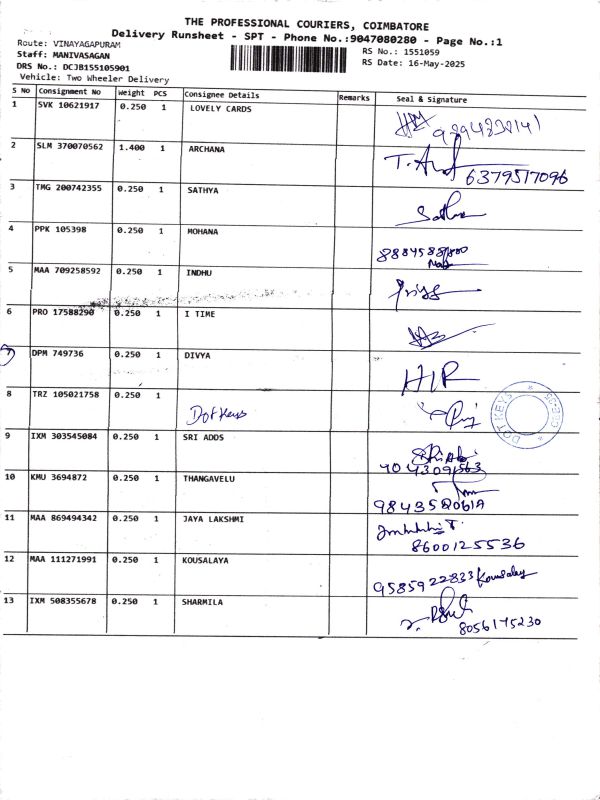 THE PROFESSIONAL COURIERS, COIMBATORE
Delivery Runsheet - SPT - Phone No.:9047080280 - Page No.:1
Route: VINAYAGAPURAM
RS No.: 1551059
Staff: MANIVASAGAN
RS Date: 16-May-2025
DRS No.: DCJB155105901
Vehicle: Two Wheeler Delivery
S No Consignment No Weight PCS Consignee Details Remarks Seal & Signature
1 SVK 10621917 0.250 1 LOVELY CARDS
2 SLM 370070562 1.400 1 ARCHANA
6379517096
3 TMG 200742355 0.250 1 SATHYA
4 PPK 105398 0.250 1 MOHANA
5 MAA 709258592 0.250 1 INDHU
6 PRO 17588290 0.250 1 I TIME
7 DPM 749736 0.250 1 DIVYA
8 TRZ 105021758 0.250 1 Dot Keys
DOT KEYS
9 IXM 303545084 0.250 1 SRI ADDS
10 KMU 3694872 0.250 1 THANGAVELU
11 MAA 869494342 0.250 1 JAYA LAKSHMI
8600125536
12 MAA 111271991 0.250 1 KOUSALAYA
9585922833 Kousalay
13 IXM 508355678 0.250 1 SHARMILA
8056175230